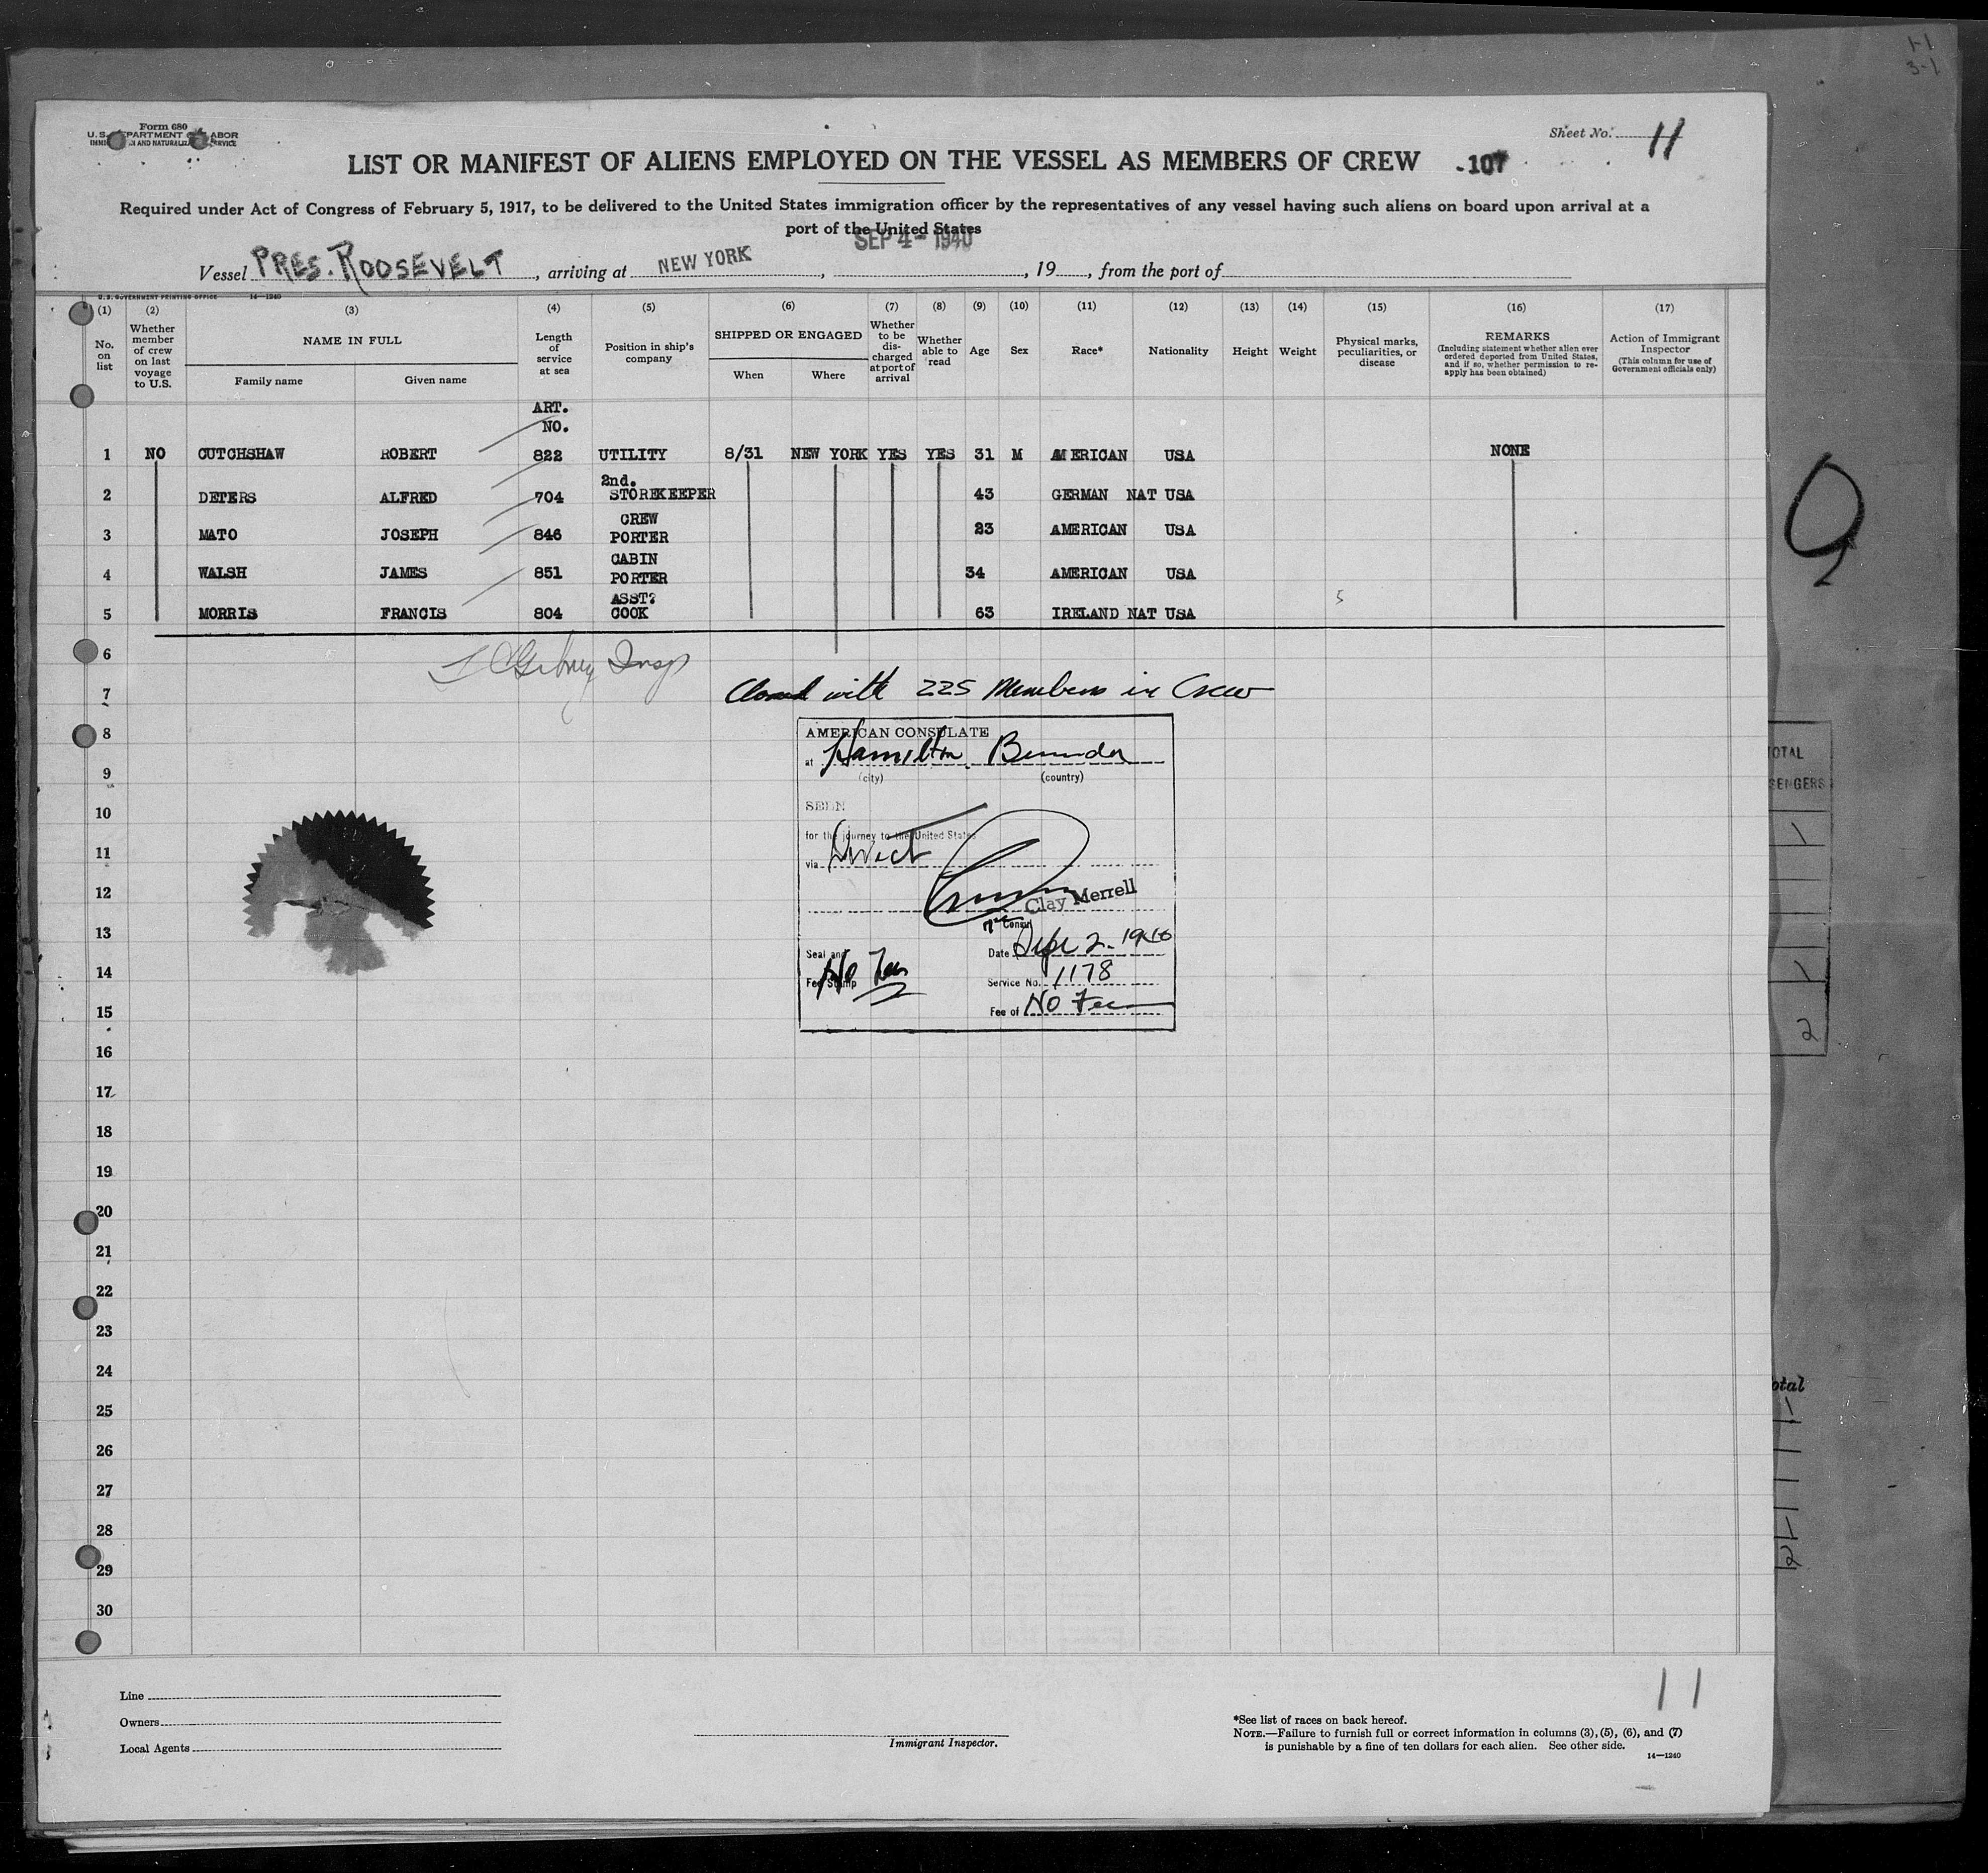 1-1
3-1
Form 680
U.S. DEPARTMENT OF LABOR
IMMIGRATION AND NATURALIZATION SERVICE
Sheet No. 11
LIST OR MANIFEST OF ALIENS EMPLOYED ON THE VESSEL AS MEMBERS OF CREW 107
Required under Act of Congress of February 5, 1917, to be delivered to the United States immigration officer by the representatives of any vessel having such aliens on board upon arrival at a
port of the United States
SEP 4 - 1940
Vessel PRES. ROOSEVELT, arriving at NEW YORK, , 19 , from the port of
U.S. GOVERNMENT PRINTING OFFICE 14—1240
(1) (2) (3) (4) (5) (6) (7) (8) (9) (10) (11) (12) (13) (14) (15) (16) (17)
No. on list
Whether member of crew on last voyage to U.S.
NAME IN FULL
Family name Given name
Length of service at sea
Position in ship's company
SHIPPED OR ENGAGED
When Where
Whether to be discharged at port of arrival
Whether able to read
Age
Sex
Race*
Nationality
Height
Weight
Physical marks, peculiarities, or disease
REMARKS
(Including statement whether alien ever ordered deported from United States, and if so, whether permission to reapply has been obtained)
Action of Immigrant Inspector
(This column for use of Government officials only)
ART.
NO.
1 NO CUTCHSHAW ROBERT 822 UTILITY 8/31 NEW YORK YES YES 31 M AMERICAN USA NONE
2nd.
2 DETERS ALFRED 704 STOREKEEPER 43 GERMAN NAT USA
CREW
3 MATO JOSEPH 846 PORTER 23 AMERICAN USA
CABIN
4 WALSH JAMES 851 PORTER 34 AMERICAN USA
ASST?
5 MORRIS FRANCIS 804 COOK 63 IRELAND NAT USA
5
6
Insp
7
Closed with 225 Members in Crew
8
AMERICAN CONSULATE
at Hamilton, Bermuda
(city) (country)
9
10
SEEN
for the journey to the United States
11
via Direct
12
Clay Merrell
Consul
13
Seal and Date Sept 2-1940
Fee Stamp No Fee
14
Service No. 1178
Fee of No Fee
15
16
17
18
19
20
21
22
23
24
25
26
27
28
29
30
TOTAL
SENGERS
1
1
2
otal
11
Line
Owners
Local Agents
Immigrant Inspector.
*See list of races on back hereof.
NOTE.—Failure to furnish full or correct information in columns (3), (5), (6), and (7)
is punishable by a fine of ten dollars for each alien. See other side.
14—1240